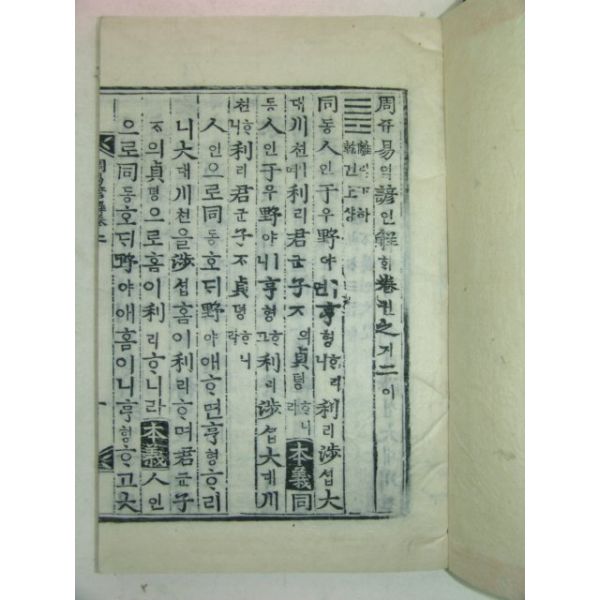 周쥬易역諺언解ᄒᆡ卷권之지二이
離리下하
乾건上샹
同동人인于우野야면亨형ᄒᆞ리니利리涉섭大
대川쳔利리君군子ᄌᆞ의貞뎡ᄒᆞ니라本義同
동人인于우野야ㅣ니亨형ᄒᆞ고利리涉섭大대川
쳔ᄒᆞ니利리君군子ᄌᆞ貞뎡ᄒᆞ니라
人인으로同동호ᄃᆡ野야애ᄒᆞ면亨형ᄒᆞ리
니大대川쳔을涉섭홈이利리ᄒᆞ며君군子
ᄌᆞ의貞뎡으로홈이利리ᄒᆞ니라本義人인
으로同동호ᄃᆡ野야애홈이니亨형ᄒᆞ고大
周易諺解卷二